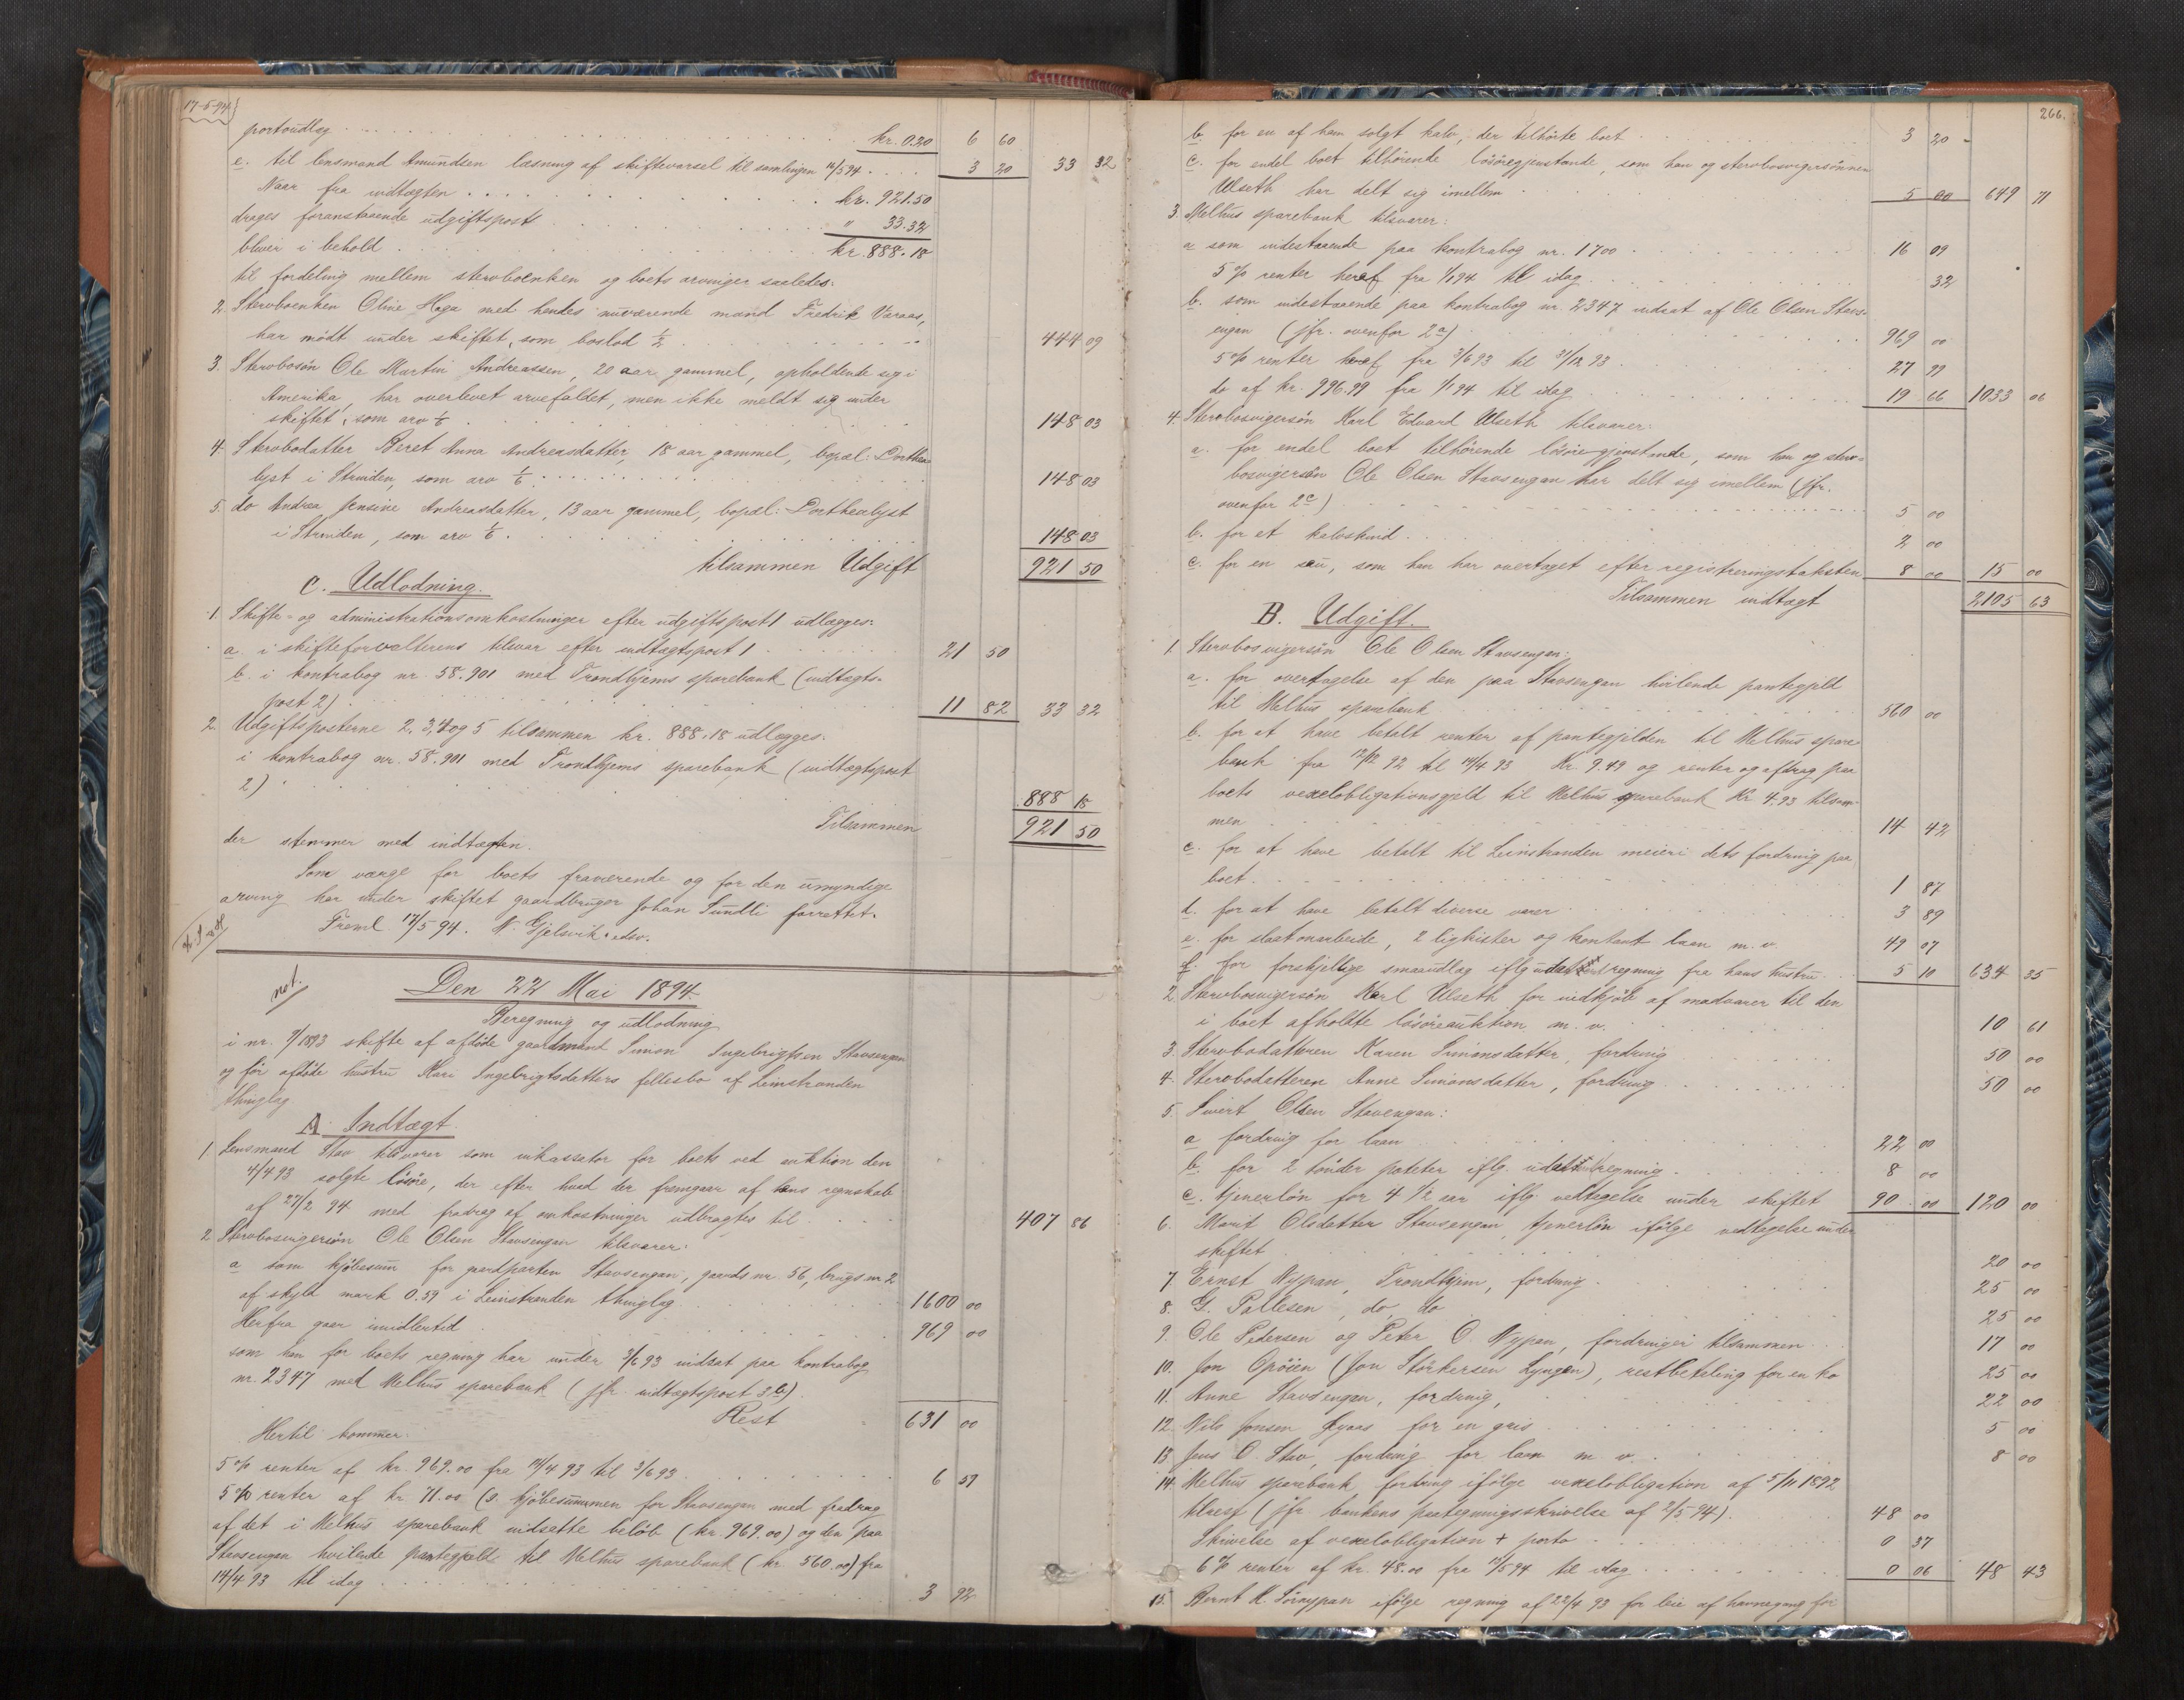 17-5-94
portoudlæg . . . kr. 0.20 6 60
e. til lensmand Amundsen læsning af skiftevarsel til samlingen 14/5 94 . . . 3 20 33 32
Naar fra indtægten . . . kr. 921.50
drages foranstaaende udgiftsposts . . . " 33.32
bliver i behold . . . kr. 888.18
til fordeling mellem stervboenken og boets arvinger saaledes:
2. Stervboenken Oline Haga med hendes nuværende mand Fredrik Varaas,
har mødt under skiftet, som boslod 1/2 . . . 444 09
3. Stervbosøn Ole Martin Andreassen, 20 aar gammel, opholdende sig i
Amerika, har overlevet arvefaldet, men ikke meldt sig under
skiftet, som arv 1/6 . . . 148 03
4. Stervbodatter Beret Anna Andreasdatter, 18 aar gammel, bopæl: Dorthea-
lyst i Strinden, som arv 1/6 . . . 148 03
5. do Andrea Jensine Andreasdatter, 13 aar gammel, bopæl: Dorthealyst
i Strinden, som arv 1/6 . . . 148 03
tilsammen Udgift 921 50
C. Udlodning.
1. Skifte- og administrationsomkostninger efter udgiftspost 1 udlægges:
a. i skifteforvalterens tilsvar efter indtægtspost 1 . . . 21 50
b. i kontrabog nr. 58.901 med Trondhjems sparebank (indtægts-
post 2) . . . 11 82 33 32
2. Udgiftsposterne 2, 3, 4 og 5 tilsammen kr. 888.18 udlægges:
i kontrabog nr. 58.901 med Trondhjems sparebank (indtægtspost
2) . . . 888 18
Tilsammen 921 50
der stemmer med indtægten.
Som værge for boets fraværende og for den umyndige
arving har under skiftet gaardbruger Johan Sundli forrettet.
Freml 17/5 94. N. Gjelsvik. edsv.
not.
Den 22 Mai 1894.
Beregning og udlodning
i nr. 7/1893 skifte af afdøde gaardmand Simon Ingebrigtsen Stavsengan
og før afdøde hustru Kari Ingebrigtsdatters fellesbo af Leinstranden
thinglag
A. Indtægt.
1. Lensmand Stav tilsvarer som inkassator for boets ved auktion den
4/4 93 solgte løsøre, der efter hvad der fremgaar af hans regnskab
af 27/2 94 med fradrag af omkostninger udbragtes til . . . 407 86
2 Stervbosvigersøn Ole Olsen Stavsengan tilsvarer:
a som kjøbesum for gaardparten Stavsengan, gaards nr. 56, brugs nr 2
af skyld mark 0.59 i Leinstranden thinglag . . . 1600 00
Herfra gaar imidlertid . . . 969 00
som han for boets regning har under 3/6 93 indsat paa kontrabog
nr. 2347 med Melhus sparebank (jfr. indtægtspost 3 b).
Rest 631 00
Hertil kommer:
5 % renter af kr. 969.00 fra 14/4 93 til 3/6 93 . . . 6 59
5 % renter af kr 71.00 (ɔ: kjøbesummen for Stavsengan med fradrag
af det i Melhus sparebank indsatte beløb (kr. 969.00) og den paa
Stavsengan hvilende pantegjæld til Melhus sparebank (kr. 560.00) fra
14/4 93 til idag . . . 3 92
266.
b. for en af ham solgt kalv, der tilhørte boet . . . 3 20
c. for endel boet tilhørende løsøregjenstande, som han og stervbosvigersønnen
Ulseth har delt sig imellem . . . 5 00 649 71
3. Melhus sparebank tilsvarer:
a som indestaaende paa kontrabog nr. 1700 . . . 16 09
5 % renter heraf fra 1/1 94 til idag . . . 32
b. som indestaaende paa kontrabog nr. 2347 indsat af Ole Olsen Stavs-
engan (jfr. ovenfor 2 a) . . . 969 00
5 % renter heraf fra 3/6 93 til 31/12 93 . . . 27 99
do af kr. 996.99 fra 1/1 94 til idag . . . 19 66 1033 06
4. Stervbosvigersøn Karl Edvard Ulseth tilsvarer:
a. for endel boet tilhørende løsøregjenstande, som han og sterv-
bosvigersøn Ole Olsen Stavsengan har delt sig imellem (jfr.
ovenfor 2 c) . . . 5 00
b. for et kalvskind . . . 2 00
c. for en sau, som han har overtaget efter registreringstaksten 8 00 15 00
Tilsammen indtægt 2105 63
B. Udgift.
1. Stervbosvigersøn Ole Olsen Stavsengan:
a. for overtagelse af den paa Stavsengan hvilende pantegjæld
til Melhus sparebank . . . 560 00
b. for at have betalt renter af pantegjælden til Melhus spare-
bank fra 12/12 92 til 14/4 93 Kr. 9.49 og renter og afdrag paa
boets vexelobligationsgjæld til Melhus sparebank Kr 4.93 tilsam-
men . . . 14 42
c. for at have betalt til Leinstranden meieri dets fordring paa
boet . . . 1 87
d. for at have betalt diverse varer . . . 3 89
e. for slaatonarbeide, 2 ligkister og kontant laan m. v. 49 07
f. for forskjellige smaaudlæg iflg regning fra hans hustru . . . 5 10 634 35
2. Stervbosvigersøn Karl Ulseth for indkjøb af madvarer til den
i boet afholdte løsøreauktion m. v. . . . 10 61
3. Stervbodatteren Karen Simonsdatter, fordring . . . 50 00
4. Stervbodatteren Anne Simonsdatter, fordring . . . 50 00
5. Sivert Olsen Stavengan:
a fordring for laan . . . 22 00
b. for 2 tønder poteter iflg. regning . . . 8 00
c. tjenerløn for 4 1/2 aar iflg. vedtagelse under skiftet 90 00 120 00
6. Marit Olsdatter Stavsengan, tjenerløn ifølge vedtagelse under
skiftet . . . 20 00
7. Ernst Nypan, Trondhjem, fordring . . . 25 00
8. G. Pallesen, do, do . . . 25 00
9. Ole Pedersen og Peter O. Nypan, fordringer tilsammen . . . 17 00
10. Jon Opøien (Jon Størkersen Lyngen), restbetaling for en ko 25 00
11. Anne Stavsengan, fordring, . . . 22 00
12. Nils Jonsen for en gris . . . 5 00
13. Jens O. Stav, fordring for laan m v. . . . 8 00
14. Melhus sparebank, fordring ifølge vexelobligation af 5/11 1892
tilrest (jfr bankens paategningsskrivelse af 2/5 94). 48 00
Skrivelse af vexelobligation + porto . . . 0 37
6 % renter af kr. 48.00 fra 14/5 94 til idag . . . 0 06 48 43
15. Bernt K. Sørnypan ifølge regning af 22/4 93 for leie af havnegang for